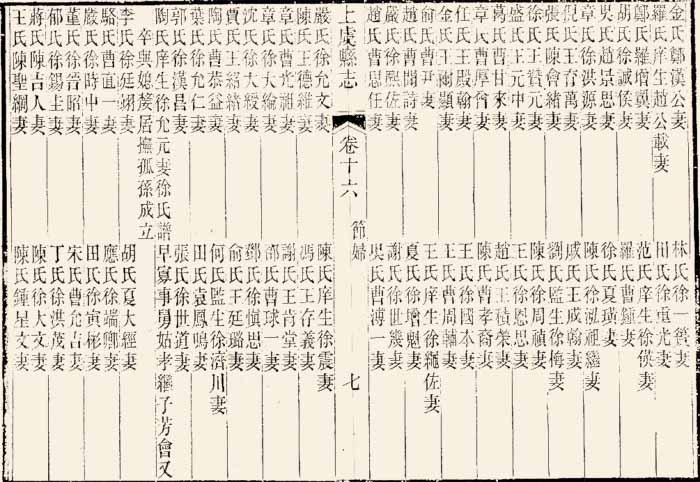 金氏鄭漢公妻 林氏徐一霄妻
羅氏庠生趙公載妻 田氏徐重光妻
鄭氏羅瓚巽妻 范氏庠生徐僙妻
胡氏徐誠侯妻 羅氏曹鍾妻
吳氏趙景思妻 徐氏夏璜妻
章氏徐洪源妻 陳氏徐泓祖繼妻
倪氏王育萬妻 戚氏王咸翰妻
張氏陳會緒妻 劉氏監生徐梅妻
徐氏王贊元妻 陳氏徐周禎妻
盛氏王元中妻 王氏徐恩思妻
萬氏曹甘來妻 趙氏王積榮妻
章氏曹厚眘妻 陳氏曹孝裔妻
任氏王殿翰妻 王氏徐國本妻
金氏王爾顯妻 王氏曹周輔妻
俞氏曹尹妻 王氏庠生徐繩佐妻
趙氏曹聞詩妻 夏氏徐增魁妻
嚴氏徐熙佐妻 謝氏徐世幾妻
趙氏曹思任妻 吳氏曹溥一妻
上虞縣志 卷十六 節婦 七
嚴氏徐允文妻 陳氏庠生徐震妻
陳氏王德維妻 馮氏王存義妻
章氏曹光祖妻 謝氏王肯堂妻
章氏徐大綸妻 邵氏曹球一妻
沈氏徐大綬妻 鄧氏徐愼思妻
賈氏王紹緒妻 俞氏王廷璐妻
陶氏曹恭益妻 何氏監生徐濟川妻
葉氏徐允仁妻 田氏袁鳳鳴妻
郭氏徐漢昌妻 張氏徐世道妻
陶氏庠生徐允元妻徐氏譜早寡事舅姑孝繼子芳會又
卒與媳嫠居撫孤孫成立
李氏徐廷翊妻 胡氏夏大經妻
駱氏曹面一妻 應氏徐端卿妻
嚴氏徐時中妻 田氏徐寅彬妻
董氏徐晉昭妻 宋氏曹允吉妻
郁氏徐錫圭妻 丁氏徐洪茂妻
蔣氏陳吉人妻 陳氏徐大文妻
王氏陳聖綱妻 陳氏鍾呈文妻